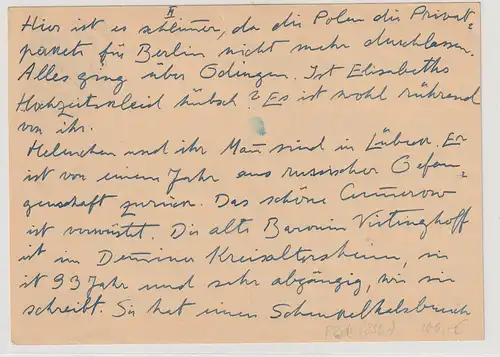 II
Hier ist es schlimmer, da die Polen die Privat-
pakete für Berlin nicht mehr durchlassen.
Alles ging über Gdingen. Ist Elisabeths
Hochzeitskleid hübsch? Es ist wohl rührend
von ihr.
Helmchen und ihr Mann sind in Lübeck. Er
ist vor einem Jahr aus russischer Gefan-
genschaft zurück. Das schöne Cummerow
ist verwüstet. Die alte Baronin Vietinghoff
ist im Demminer Kreisaltersheim, sie
ist 93 Jahr und sehr abgängig, wie sie
schreibt. Sie hat einen Schenkelhalsbruch